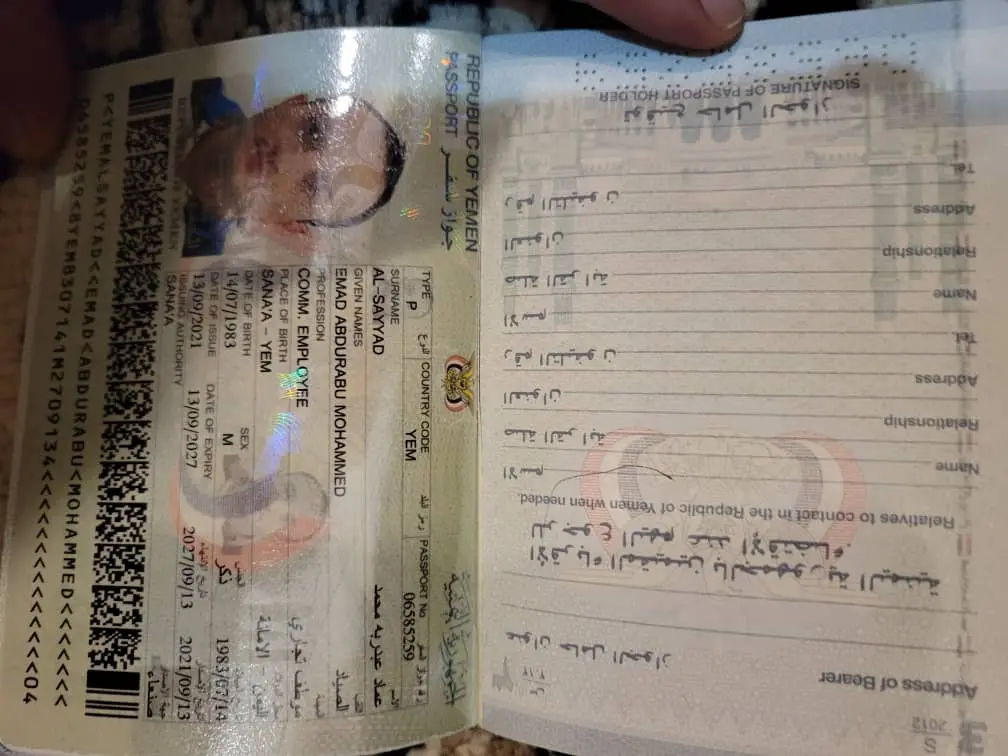 REPUBLIC OF YEMEN
PASSPORT جواز سفر
الجمهورية اليمنية
TYPE النوع COUNTRY CODE رمز البلد PASSPORT No
P YEM 06585259
SURNAME
AL-SAYYAD
عماد عبدربه محمد
GIVEN NAMES اللقب
EMAD ABDURABU MOHAMMED الصياد
PROFESSION المهنة
COMM. EMPLOYEE موظف تجاري
PLACE OF BIRTH
SANA'A - YEM اليمن - الامانة
DATE OF BIRTH SEX الجنس
14/07/1983 M ذكر 1983/07/14
DATE OF ISSUE DATE OF EXPIRY تاريخ الانتهاء تاريخ الاصدار
13/09/2021 13/09/2027 2027/09/13 2021/09/13
ISSUING AUTHORITY
SANA'A صنعاء
P<YEMALSAYYAD<<EMAD<ABDURABU<MOHAMMED<<<<<<<
06585259<8YEM8307141M2709134<<<<<<<<<<<<<<04
Address of Bearer
عنوان حامل الجواز
الأقرباء المقيمين بالجمهورية اليمنية
للرجوع اليهم عند الاقتضاء
Relatives to contact in the Republic of Yemen when needed.
Name الاسم
Relationship صلة القرابة
Address العنوان
Tel. رقم التليفون
Name الاسم
Relationship صلة القرابة
Address العنوان
Tel. رقم التليفون
توقيع حامل الجواز
SIGNATURE OF PASSPORT HOLDER
S
2012
3